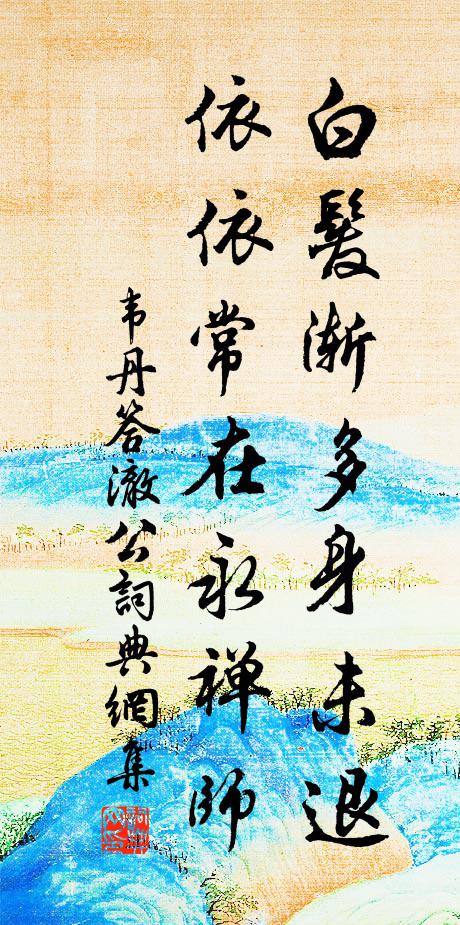 白髮漸多身未退
依依常在永禪師
韦丹答澈公詞典網集